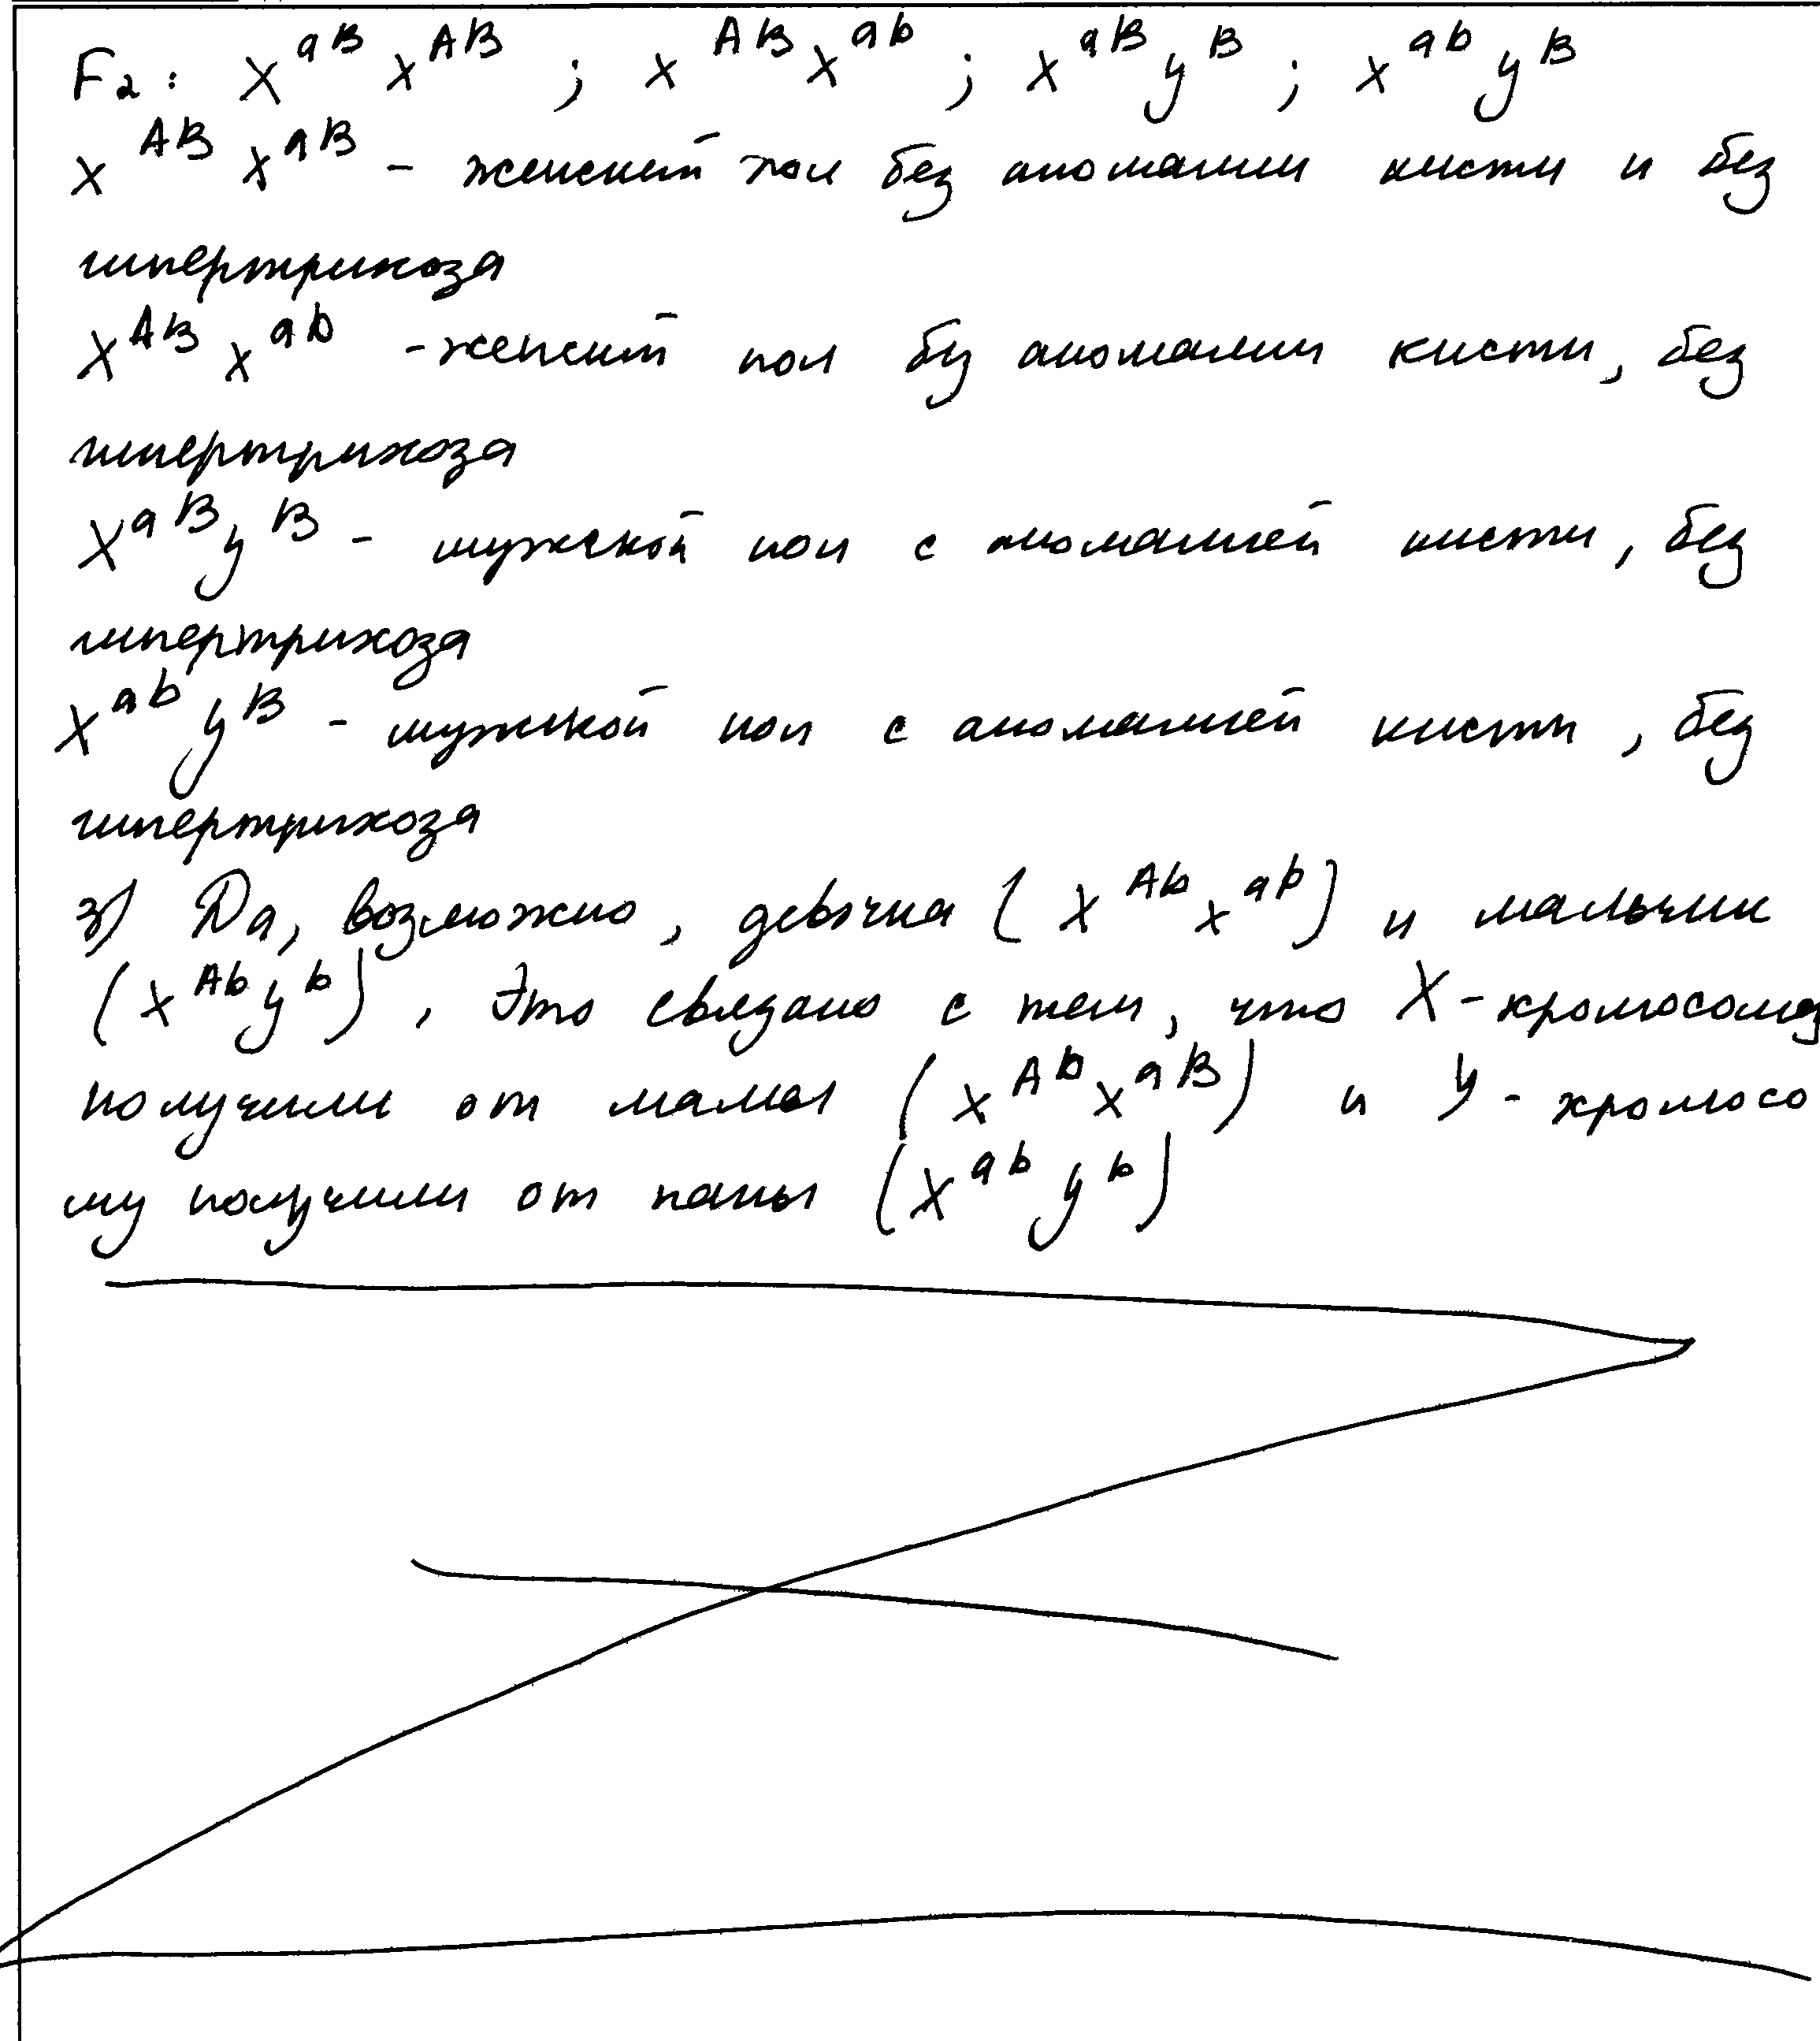 F₂: X^aB x^AB ; x^AB x^ab ; x^aB y^B ; x^ab y^B
x^AB x^aB - женский пол без аномалии кисти и без
гипертрихоза
X^AB x^ab - женский пол без аномалии кисти, без
гипертрихоза
X^aB y^B - мужской пол с аномалией кисти, без
гипертрихоза
X^ab y^B - мужской пол с аномалией кисти, без
гипертрихоза
3) Да, возможно, девочка (X^Ab x^ab) и мальчик
(x^Ab y^b), Это связано с тем, что X-хромосому
получили от мамы (x^Ab x^aB) и y-хромосо
му получили от папы (x^ab y^b)